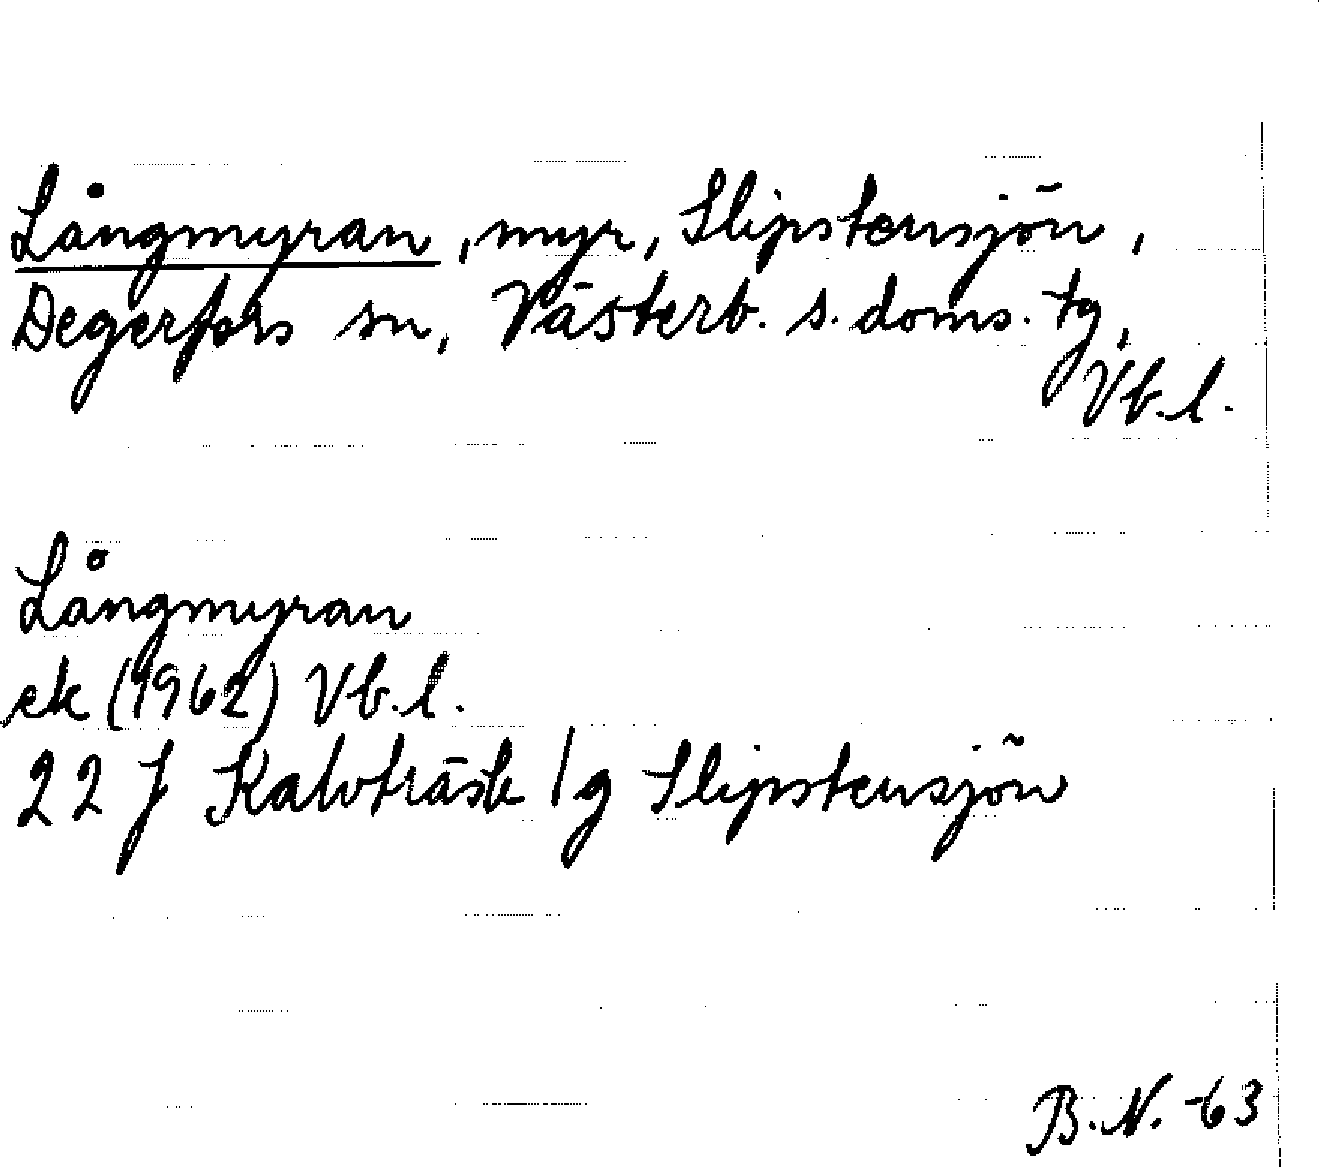 Långmyran, myr, Slipstensjön,
Degerfors sn, Västerb. s. doms. tg,
Vb.l.
Långmyran
ek (1962) Vb.l.
22 J Kalvträsk /g Slipstensjön
B.N. -63